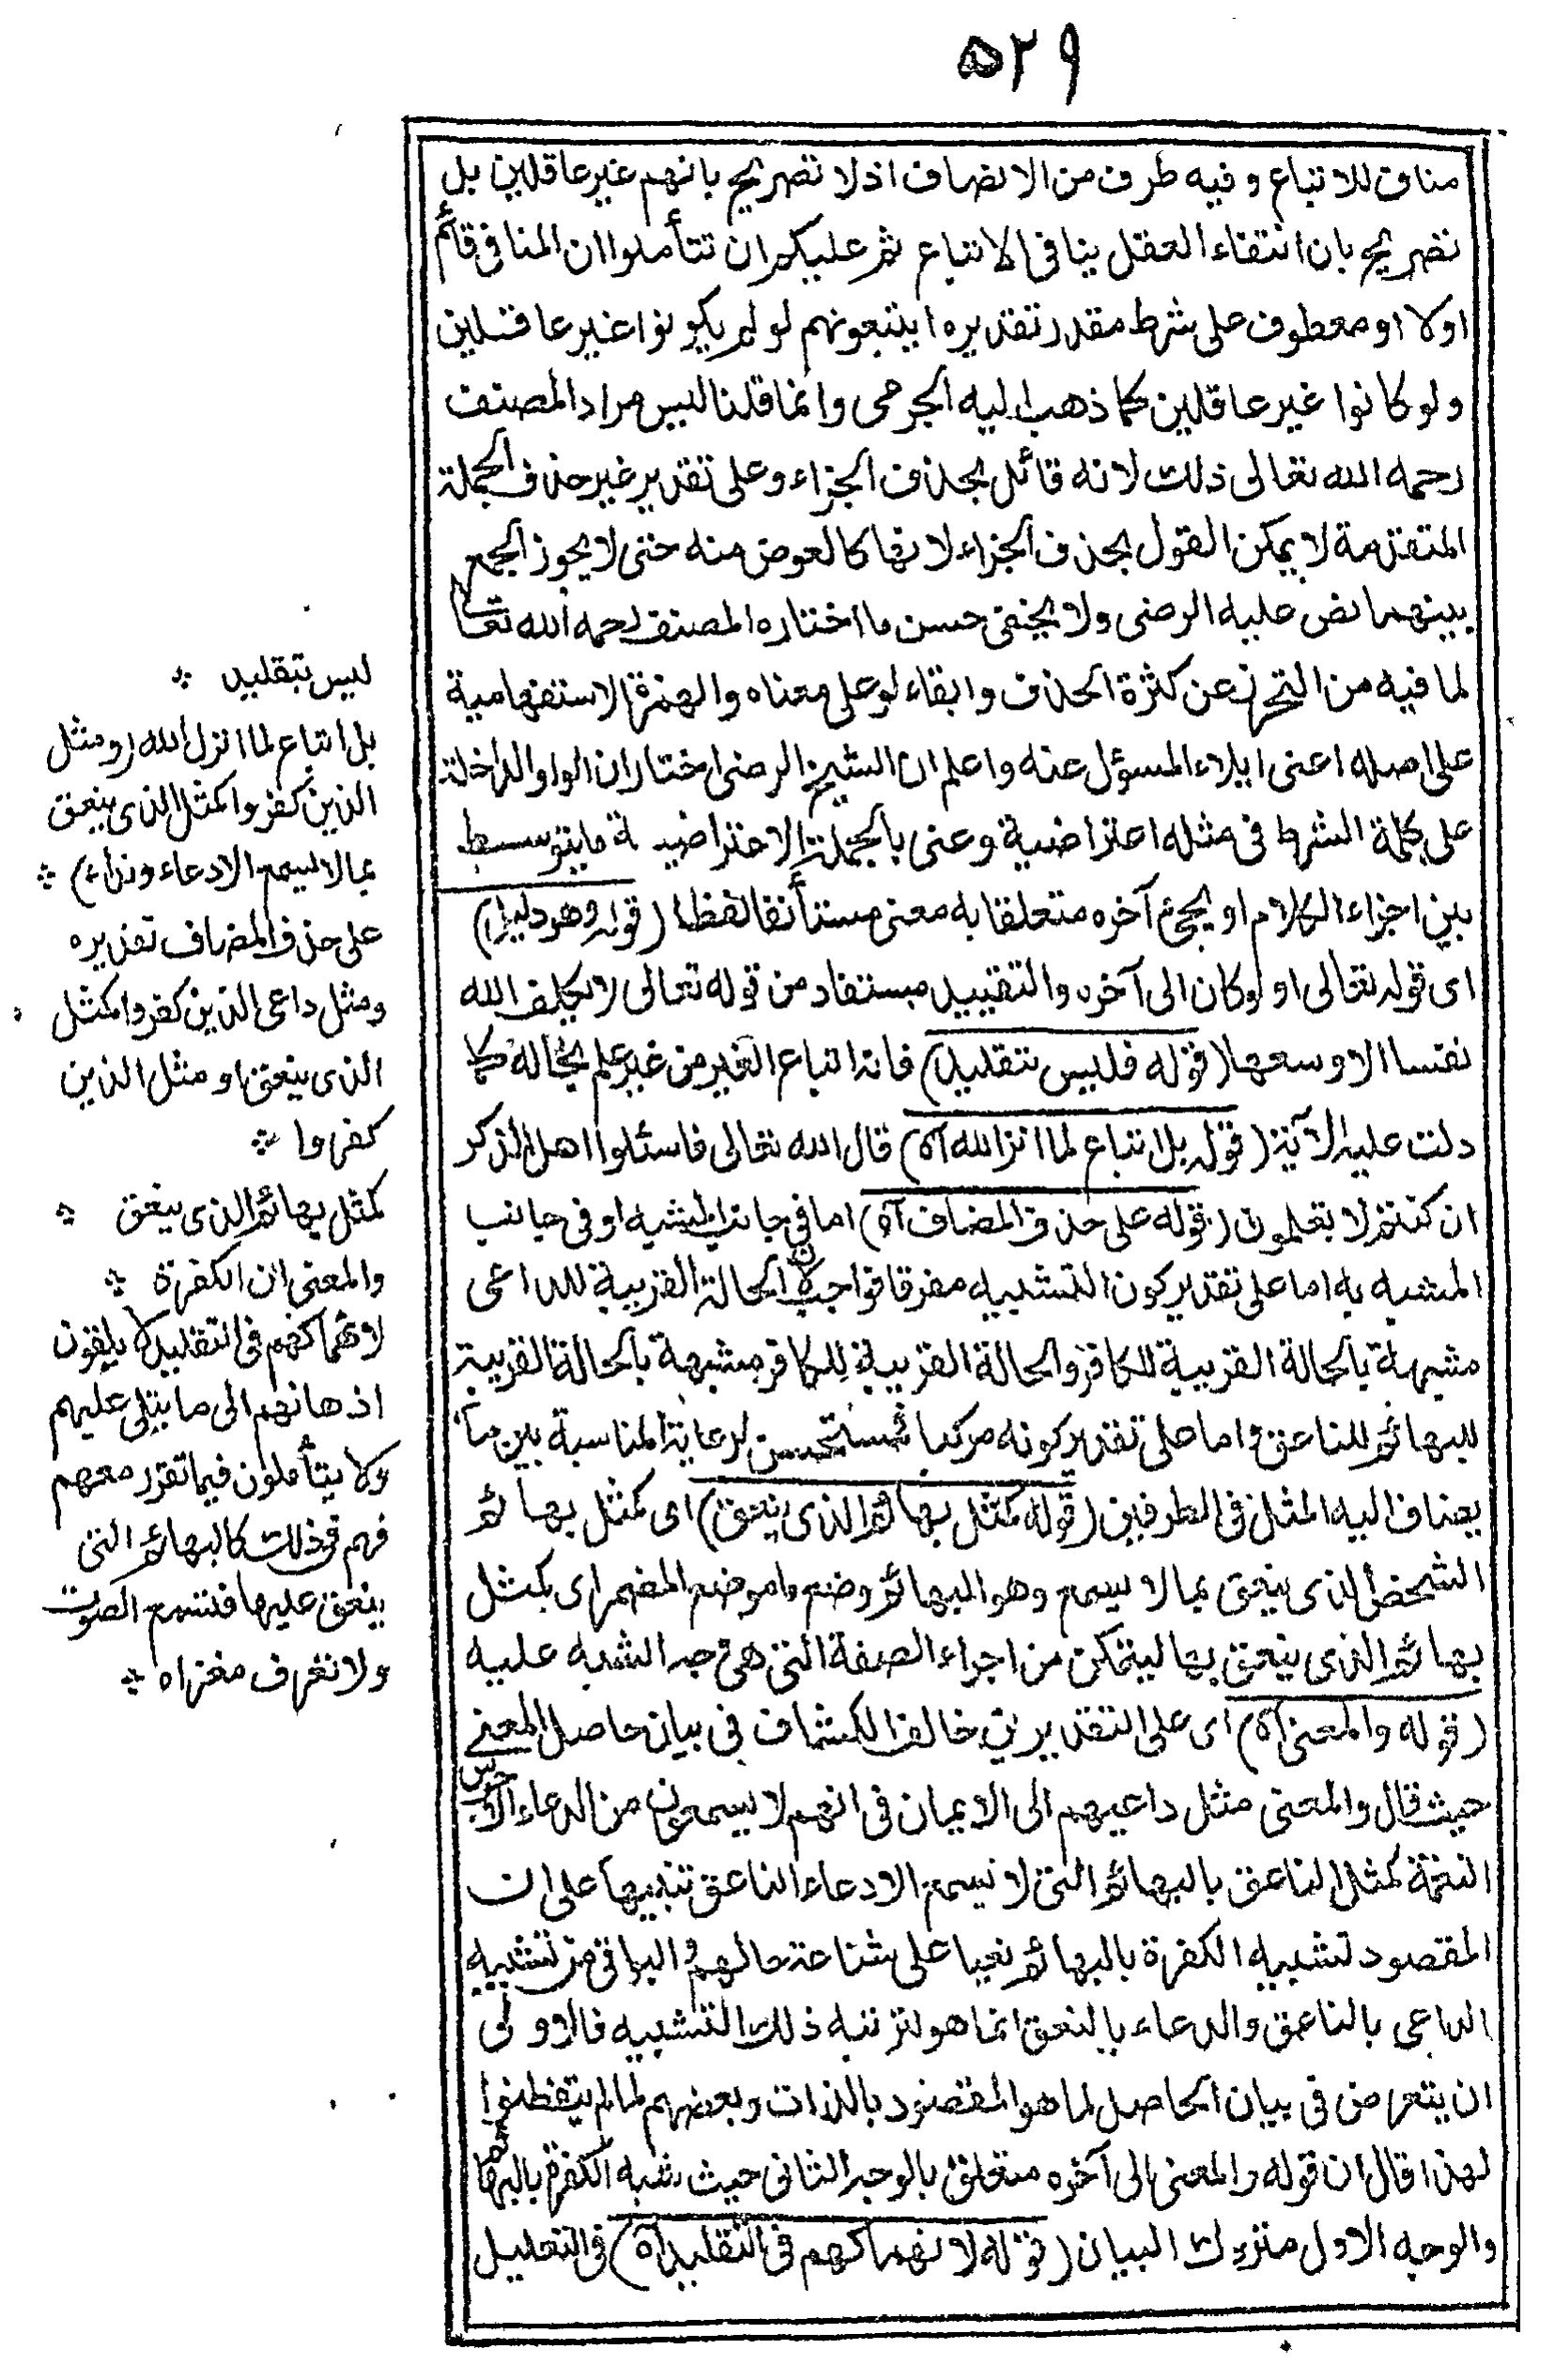 ٥٢٩
مناف للاتباع وفيه طرف من الانصاف اذلا تصريح بانهم غير عاقلين بل
تصريح بان انتفاء العقل ينافى الاتباع ثم عليكم ان تتأملوا ان المنافى قائم
اولا او معطوف على شرط مقدر تقديره ايتبعونهم لو لم يكونوا غير عاقلين
ولو كانوا غير عاقلين كما ذهب اليه الجرمى وانما قلنا ليس مراد المصنف
رحمه الله تعالى ذلك لانه قائل بحذف الجزاء وعلى تقدير غير حذف الجملة
المتقدمة لا يمكن القول بحذف الجزاء لانها كالعوض منه حتى لا يجوز الجمع
بينهما نص عليه الرضى ولا يخفى حسن ما اختاره المصنف رحمه الله تعالى
لما فيه من التحرز عن كثرة الحذف وابقاء لو على معناه والهمزة الاستفهامية
على اصله اعنى ايلاء المسؤل عنه واعلم ان الشيخ الرضى اختار ان الواو الداخلة
على كلمة الشرط فى مثله اعتراضية وعنى بالجملة الاعتراضية ما يتوسط
بين اجزاء الكلام او يجئ آخره متعلقا به معنى مستأنفا لفظا (قوله وهو دليل)
اى قوله تعالى او لو كان الى آخره والتقييد مستفاد من قوله تعالى لا يكلف الله
نفسا الا وسعها (قوله فليس بتقليد) فانه اتباع الغير من غير علم بحاله كما
دلت عليه الآية (قوله بل اتباع لما انزل الله آه) قال الله تعالى فاسئلوا اهل الذكر
ان كنتم لا تعلمون (قوله على حذف المضاف آه) اما فى جانب المشبه او فى جانب
المشبه به اما على تقدير كون التشبيه مفرقا فواجب لان الحالة القريبة للداعى
مشبهة بالحالة القريبة للكافر والحالة القريبة للكافر مشبهة بالحالة القريبة
للبهائم للناعق واما على تقدير كونه مركبا فمستحسن لرعاية المناسبة بين ما
يضاف اليه المثل فى الطرفين (قوله كمثل بهائم الذى ينعق) اى كمثل بهائم
الشخص الذى ينعق بما لا يسمع وهو البهائم وضع ما موضع المضمر اى كمثل
بهائم الذى ينعق بها ليتمكن من اجراء الصفة التى هى وجه الشبه عليه
(قوله والمعنى آه) اى على التقديرين خالف الكشاف فى بيان حاصل المعنى
حيث قال والمعنى مثل داعيهم الى الايمان فى انهم لا يسمعون من الدعاء الا جرس
النغمة كمثل الناعق بالبهائم التى لا تسمع الا دعاء الناعق تنبيها على ان
المقصود تشبيه الكفرة بالبهائم نعيا على شناعة حالهم والباقى من تشبيه
الداعى بالناعق والدعاء بالنعق انما هو لترتبه ذلك التشبيه فالاولى
ان يتعرض فى بيان الحاصل لما هو المقصود بالذات وبعضهم لما لم يتفطنوا
لهذا قال ان قوله والمعنى الى آخره متعلق بالوجه الثانى حيث شبه الكفرة بالبهائم
والوجه الاول متروك البيان (قوله لانهماكهم فى التقليد آه) فى التعليل
ليس بتقليد
بل اتباع لما انزل الله (ومثل
الذين كفروا كمثل الذى ينعق
بما لا يسمع الا دعاء ونداء)
على حذف المضاف تقديره
ومثل داعى الذين كفروا كمثل
الذى ينعق او مثل الذين
كفروا
كمثل بهائم الذى ينعق
والمعنى ان الكفرة
لانهماكهم فى التقليد لا يلقون
اذهانهم الى ما يتلى عليهم
ولا يتأملون فيما تقرر معهم
فهم فى ذلك كالبهائم التى
ينعق عليها فتسمع الصوت
ولا تعرف مغزاه